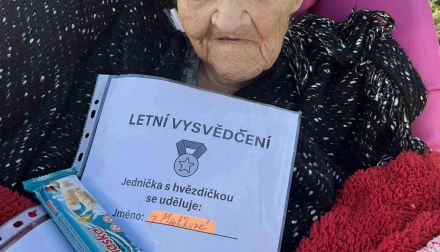 LETNÍ VYSVĚDČENÍ
Jednička s hvězdičkou
se uděluje:
Jméno: